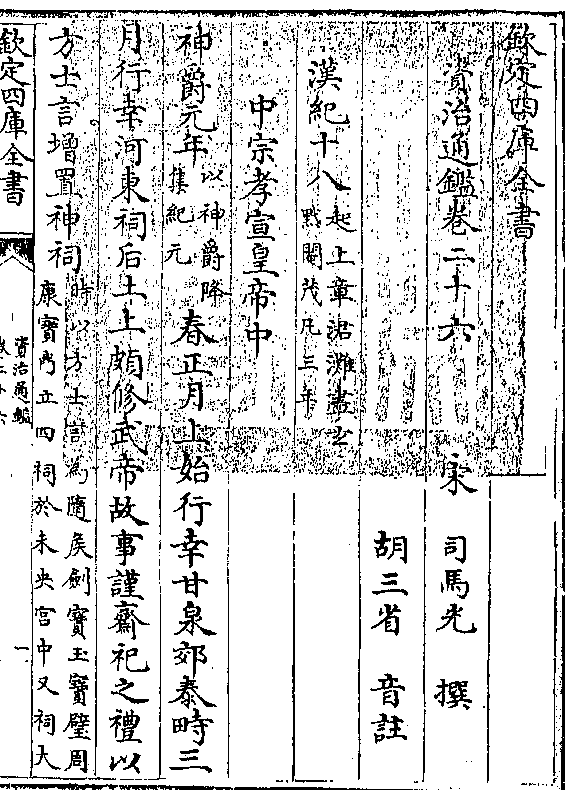 欽定四庫全書
資治通鑑卷二十六
宋 司馬光 撰
胡三省 音註
漢紀十八 起上章涒灘盡玄
黓閹茂凡三年
中宗孝宣皇帝中
神爵元年 以神爵降
集紀元 春正月上始行幸甘泉郊泰畤三
月行幸河東祠后土上頗修武帝故事謹齋祀之禮以
方士言增置神祠 時以方士言為隨侯劍寶玉寶璧周
康寶鼎立四祠於未央宫中又祠大
欽定四庫全書
資治通鑑
卷二十六
一